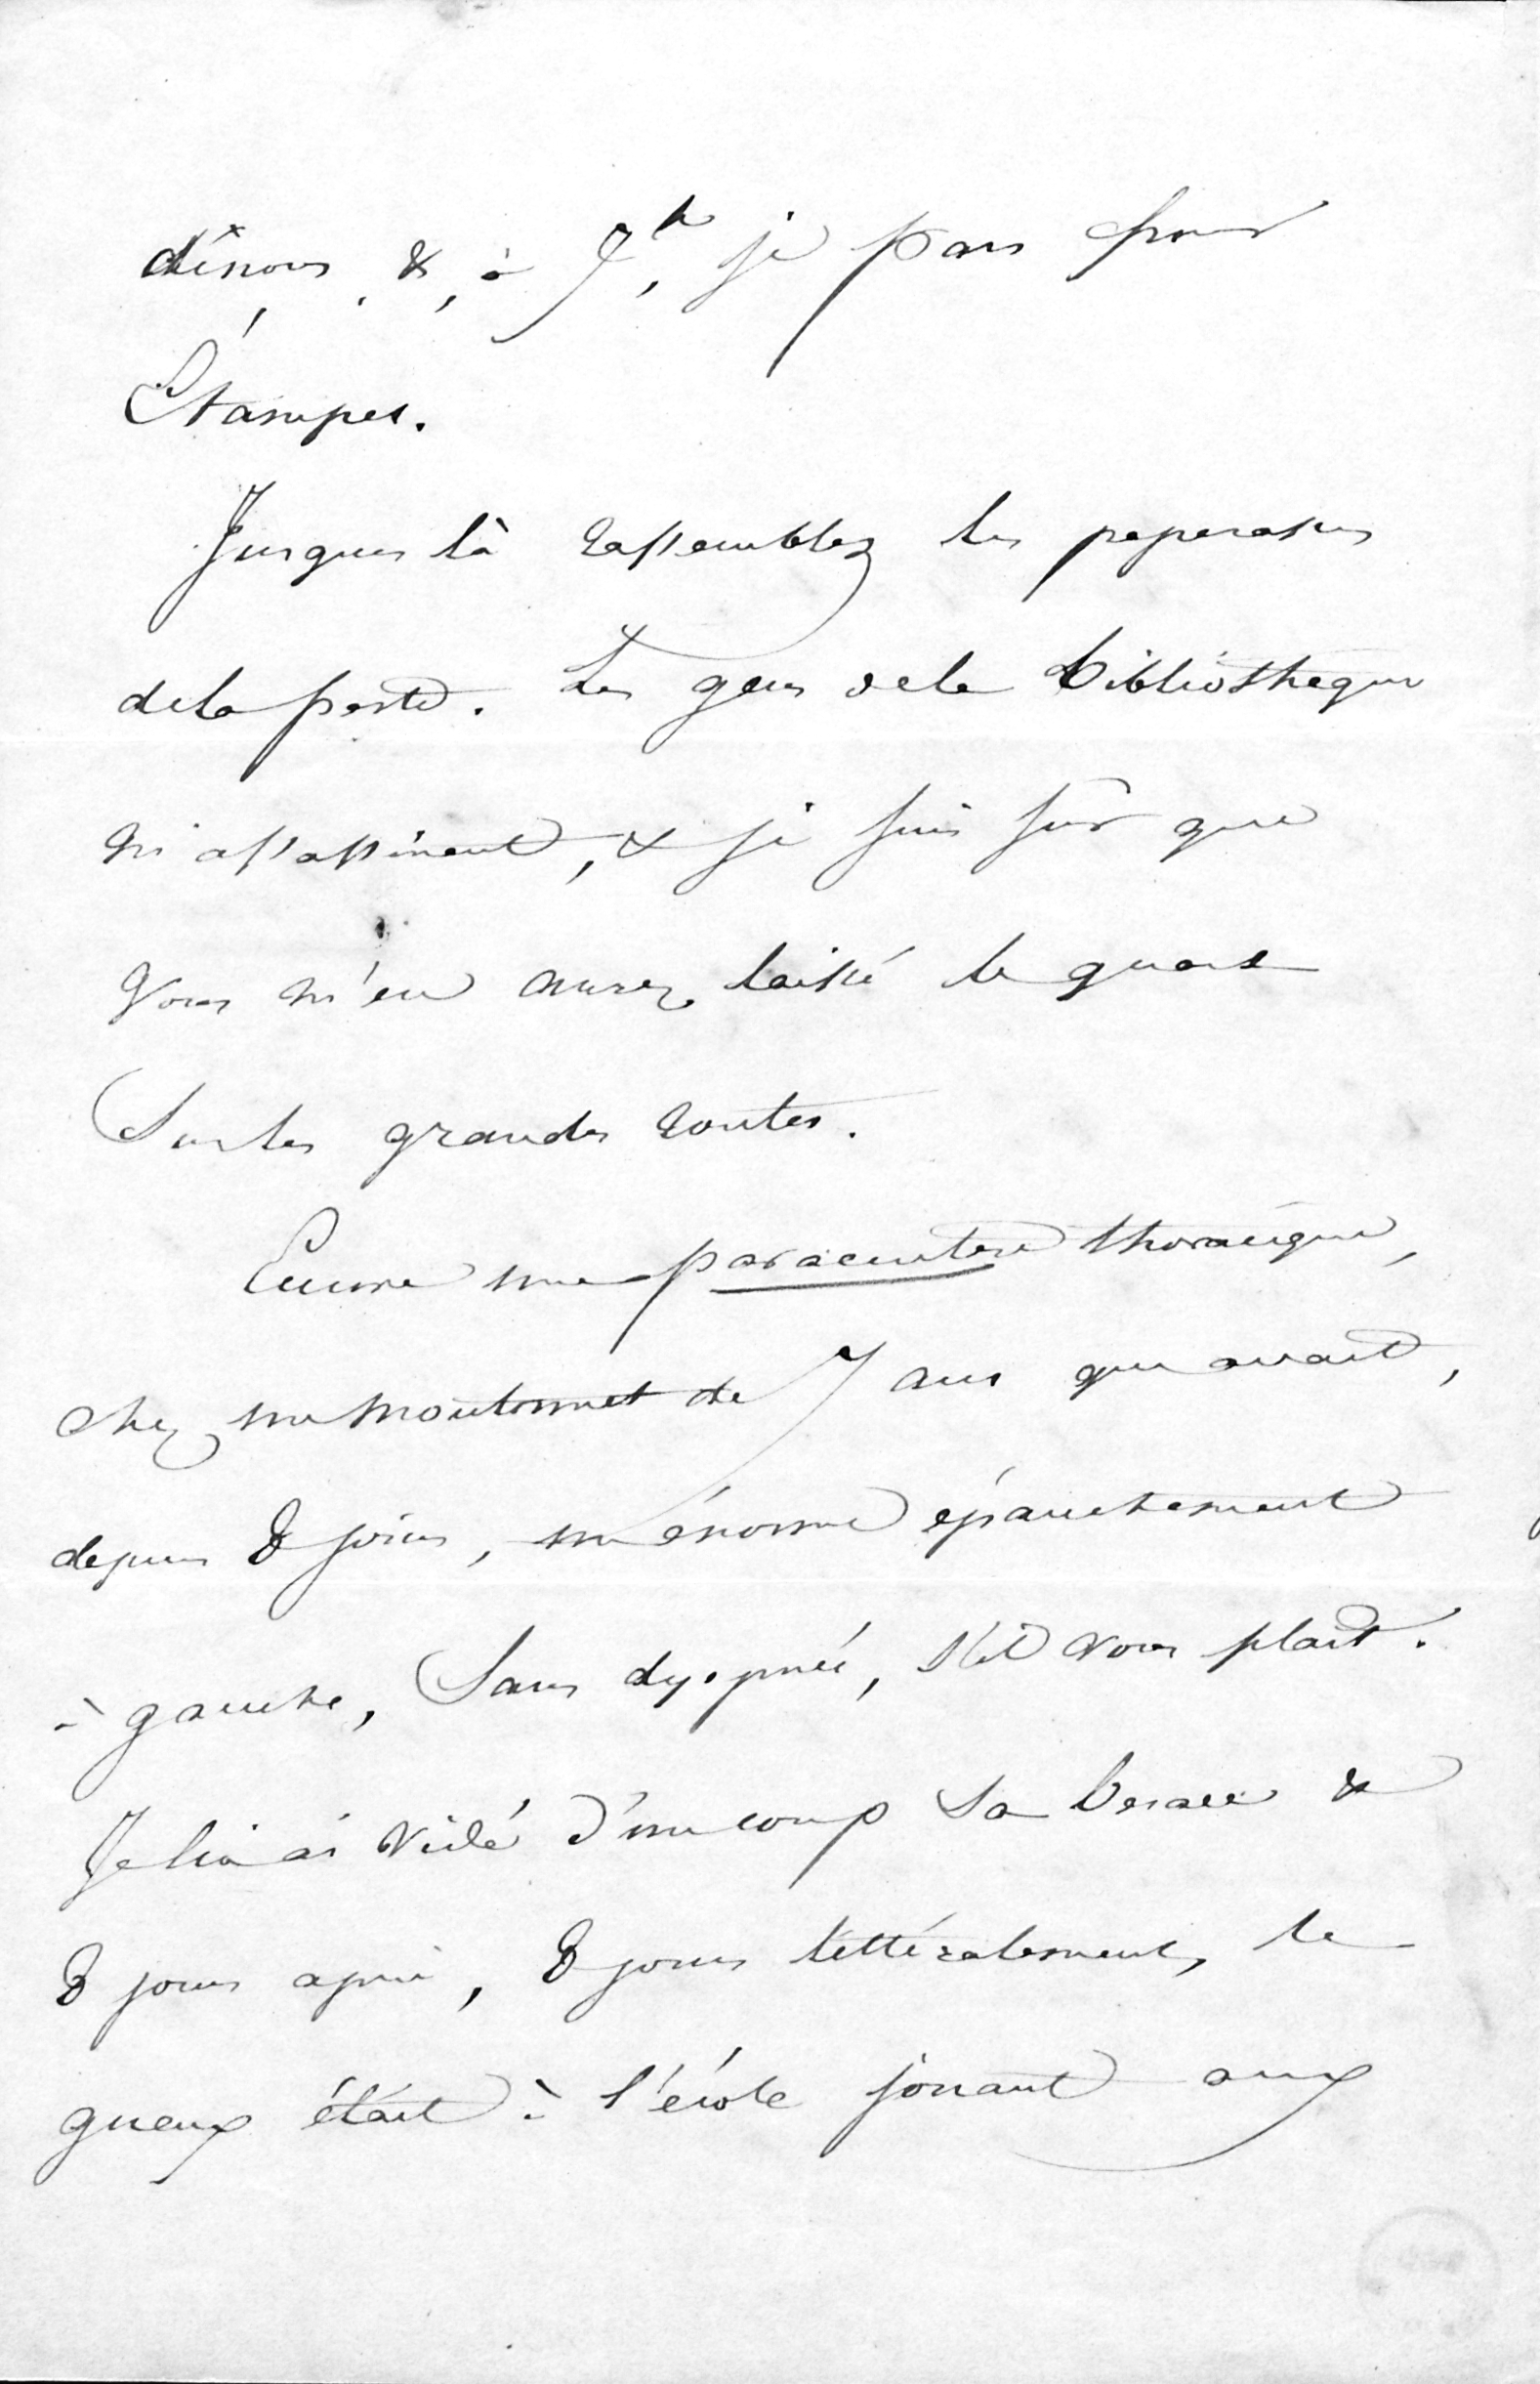 dînons, &, à 7h, je pars pour
Étampes.
Jusques là rassemblez les paperasses
de la peste. Les gens de la bibliothèque
m'assassinent, & je suis sûr que
vous m'en aurez laissé le quart
sur les grandes routes.
Encore une paracentèse thoracique,
chez un moutonnet de 7 ans qui avait,
depuis 8 jours, un énorme épanchement
à gauche, sans dyspnée, s'il vous plait.
Je lui ai vidé d'un coup sa besace &
8 jours après, 8 jours littéralement, le
gueux était à l'école jouant aux